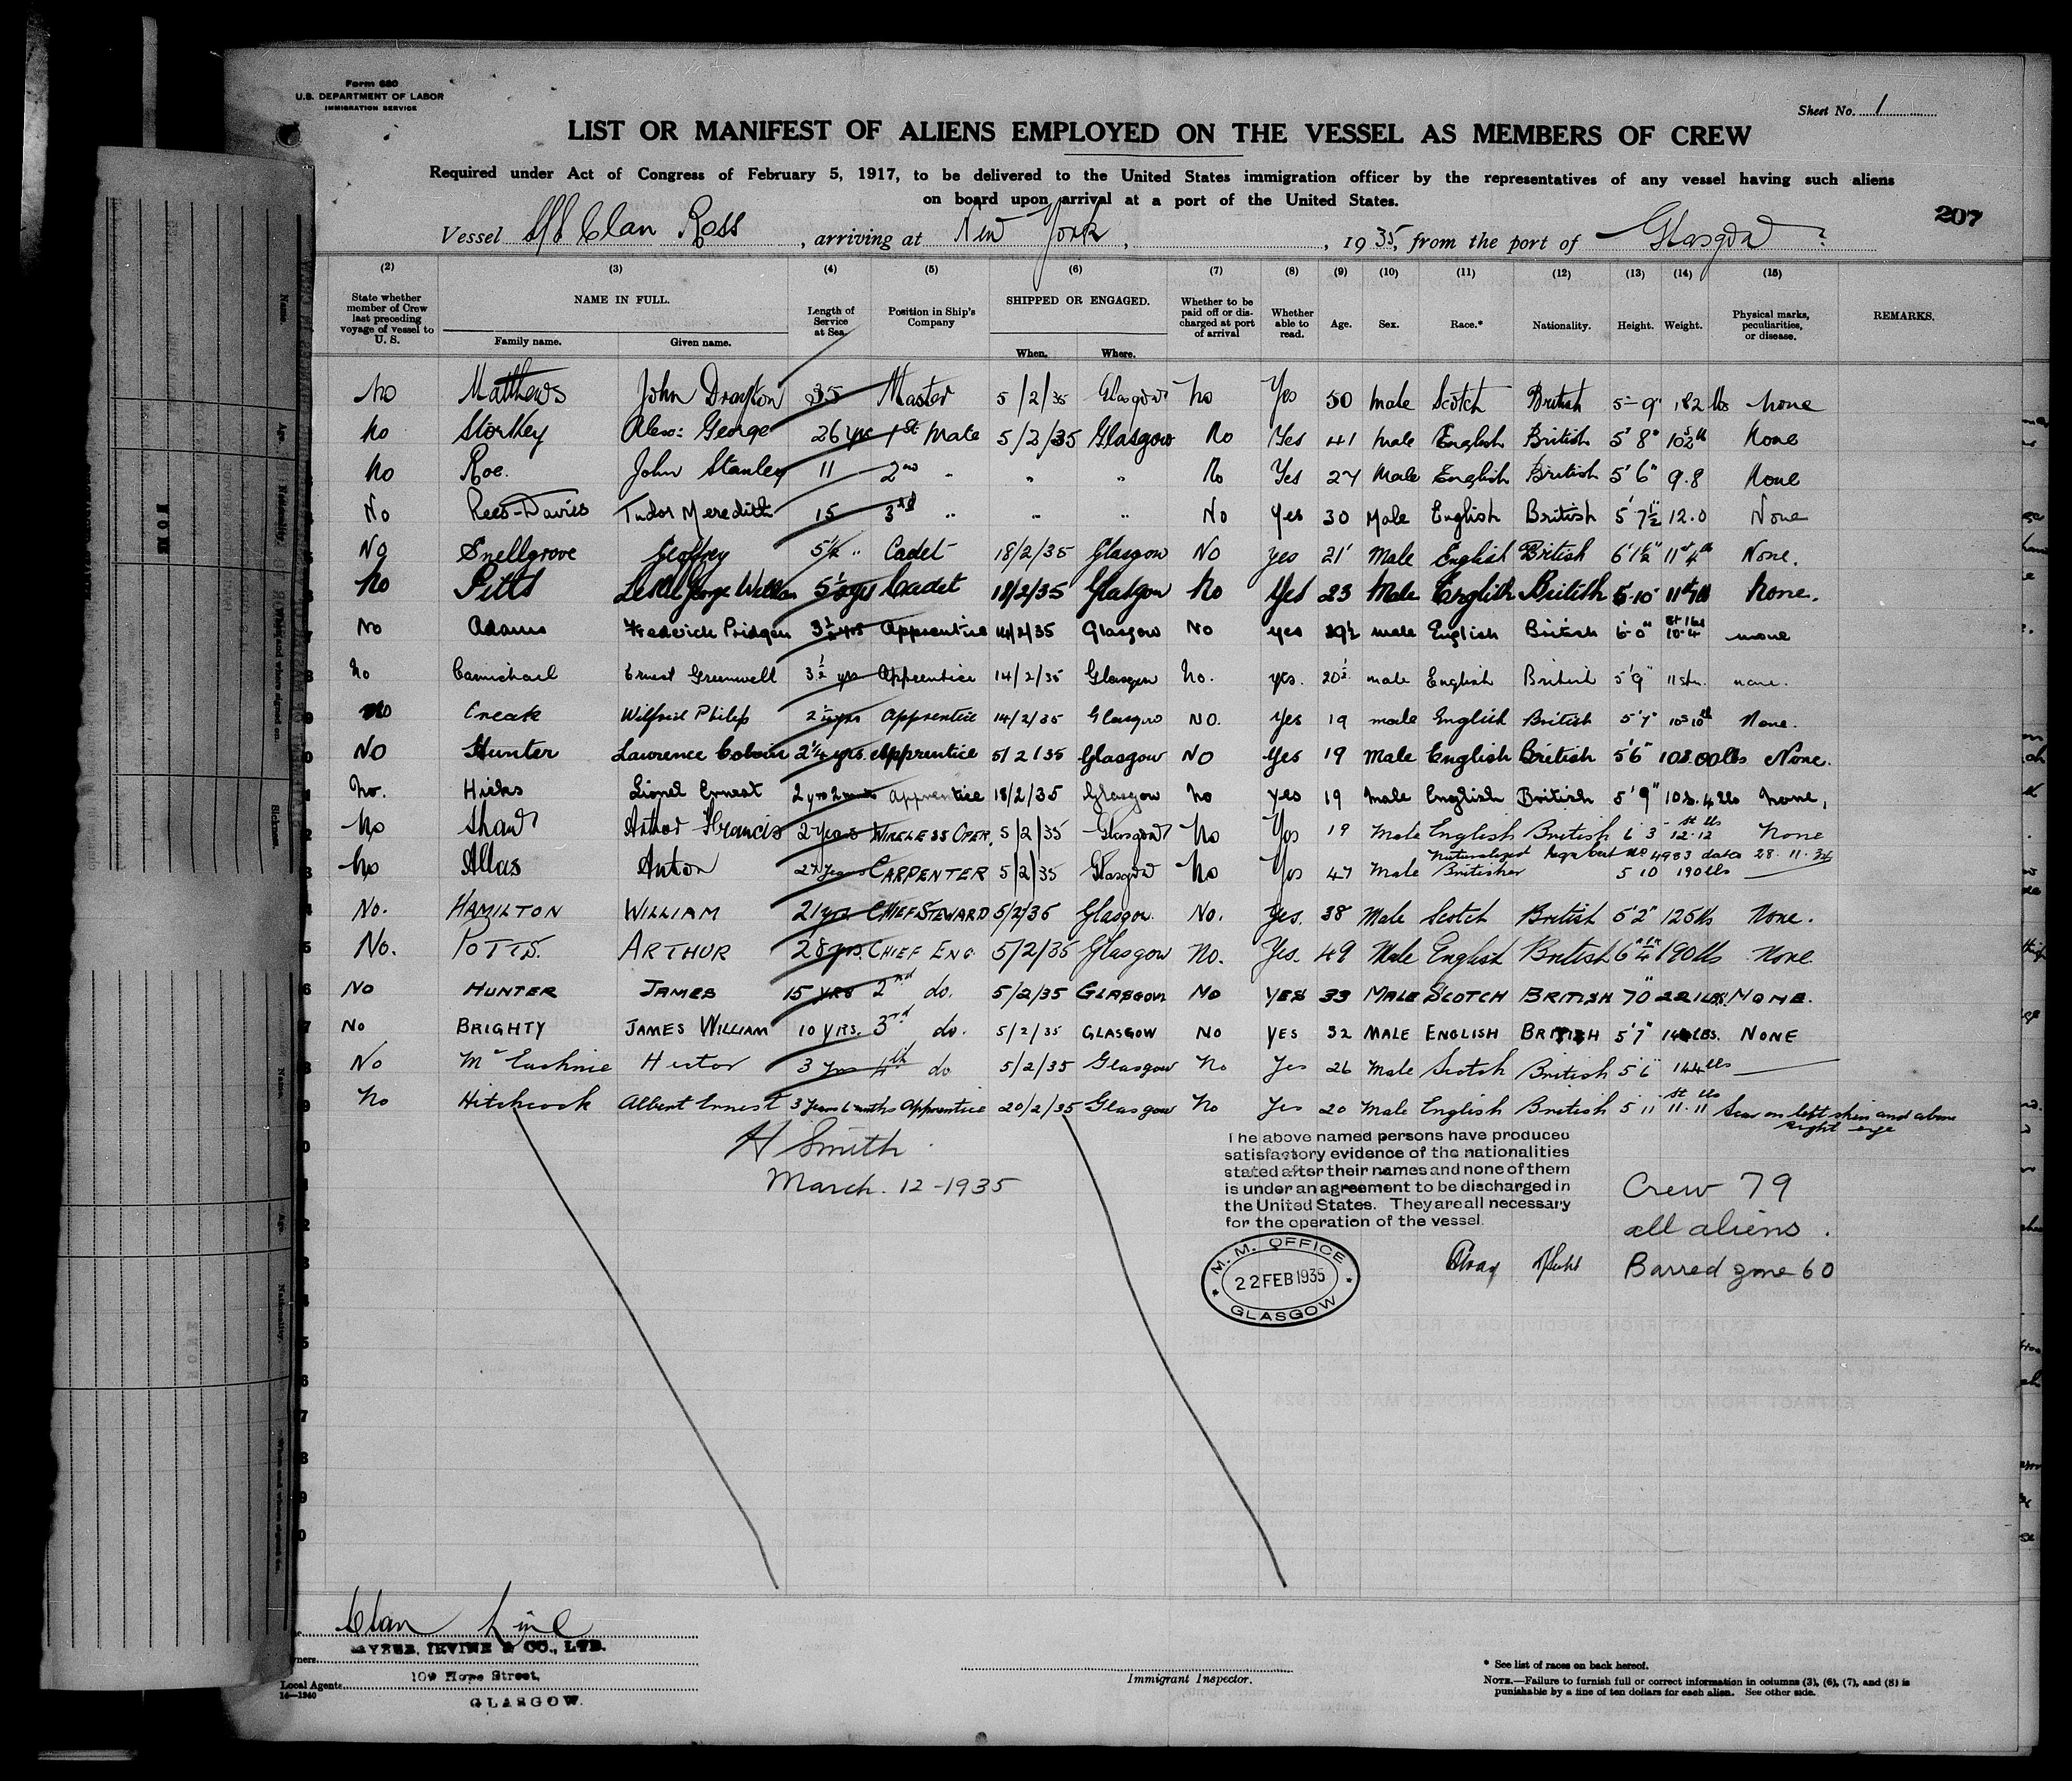 Form 680
U.S. DEPARTMENT OF LABOR
IMMIGRATION SERVICE
Sheet No. 1
LIST OR MANIFEST OF ALIENS EMPLOYED ON THE VESSEL AS MEMBERS OF CREW
Required under Act of Congress of February 5, 1917, to be delivered to the United States immigration officer by the representatives of any vessel having such aliens
on board upon arrival at a port of the United States.
207
Vessel S/S Clan Ross, arriving at New York, , 1935, from the port of Glasgow
(2) (3) (4) (5) (6) (7) (8) (9) (10) (11) (12) (13) (14) (15)
State whether member of Crew last preceding voyage of vessel to U. S. NAME IN FULL. Family name. Given name. Length of Service at Sea. Position in Ship's Company SHIPPED OR ENGAGED. When. Where. Whether to be paid off or discharged at port of arrival Whether able to read. Age. Sex. Race.* Nationality. Height. Weight. Physical marks, peculiarities, or disease. REMARKS.
No Matthews John Drayton 35 Master 5/2/35 Glasgow No Yes 50 Male Scotch British 5-9" 182 lbs None
No Storkey Alex: George 26 yrs 1st Mate 5/2/35 Glasgow No Yes 41 Male English British 5' 8" None
No Roe. John Stanley 11 2nd " " " No Yes 27 Male English British 5' 6" 9.8 None
No Rees-Davies Tudor Meredith 15 3rd " " " No Yes 30 Male English British 5' 7½" 12.0 None
No Snellgrove Geoffrey 5½ " Cadet 18/2/35 Glasgow No Yes 21 Male English British 6'1½" 11st 4lb None.
No Pitts Leslie George William 5½ yrs Cadet 18/2/35 Glasgow No Yes 23 Male English British 5'10" None.
No Adams Frederick Pridgen 3½ yrs Apprentice 14/2/35 Glasgow No yes 19½ male English British 6'0" st lbs 10-4 none
No Carmichael Ernest Greenwell 3½ yrs Apprentice 14/2/35 Glasgow No. yes. 20½ male English British 5'9" 11 st. none.
No Creak Wilfrid Philip Apprentice 14/2/35 Glasgow NO. Yes 19 male English British 5'7" None.
NO Hunter Lawrence 2¼ yrs. Apprentice 5/2/35 Glasgow NO Yes 19 Male English British 5'6" 10s.00lbs None.
No. Hicks Lionel Ernest 2 yrs 2 months Apprentice 18/2/35 Glasgow No yes 19 Male English British 5' 9" 10s. 4 lbs None,
No Shaw Arthur Francis 2 Years WIRELESS OPER. 5/2/35 Glasgow No Yes 19 Male English British 6 3 st lbs 12.12 None
No Allas Anton 27 Years CARPENTER 5/2/35 Glasgow No Yes 47 Male Naturalized Britisher Cert No 4983 date 28.11.34 5 10 190 lbs
No. HAMILTON WILLIAM 21 yrs CHIEF STEWARD 5/2/35 Glasgow. No. Yes. 38 Male Scotch British 5'2" 126 lbs None.
No. POTTS. ARTHUR 28 yrs. CHIEF ENG. 5/2/35 Glasgow No. Yes. 49 Male English British 190 lbs None
NO HUNTER JAMES 15 YRS 2nd do. 5/2/35 GLASGOW NO YES 33 MALE SCOTCH BRITISH 70" 221 LBS. NONE.
NO BRIGHTY JAMES WILLIAM 10 YRS. 3rd do. 5/2/35 GLASGOW NO YES 32 MALE ENGLISH BRITISH 5'7" NONE
No Hector 3 yrs 4th do 5/2/35 Glasgow No Yes 26 Male Scotch British 5'6" 144 lbs
No Hitchcock Albert Ernest 3 Years 6 months Apprentice 20/2/35 Glasgow No Yes 20 Male English British 5 11 st lbs 11.11 Scar on left shin and above
right eye
H Smith
March. 12-1935
The above named persons have produced
satisfactory evidence of the nationalities
stated after their names and none of them
is under an agreement to be discharged in
the United States. They are all necessary
for the operation of the vessel.
Crew 79
all aliens.
Barred zone 60
M. M. OFFICE
22 FEB 1935
GLASGOW
Clan Line
IRVINE & CO., LTD.
109 Hope Street,
Local Agents
GLASGOW.
Immigrant Inspector.
* See list of races on back hereof.
NOTE.—Failure to furnish full or correct information in columns (3), (6), (7), and (8) is
punishable by a fine of ten dollars for each alien. See other side.